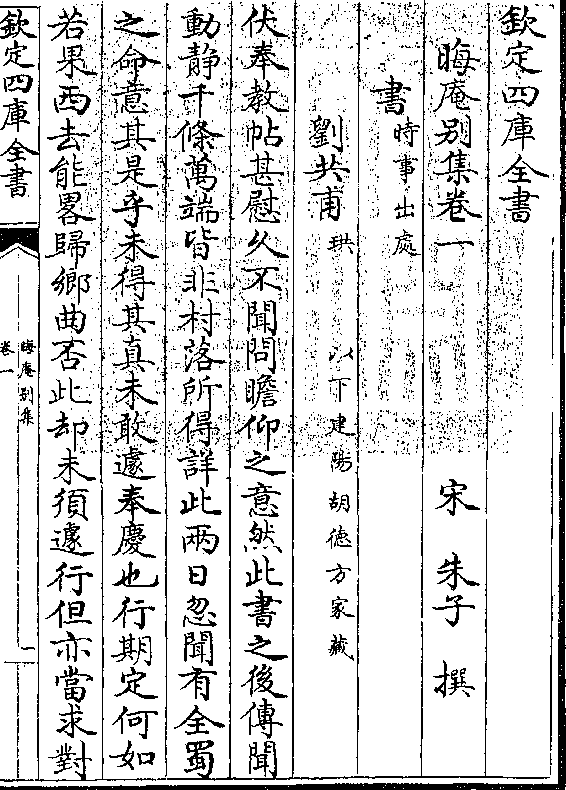 欽定四庫全書
晦庵别集卷一　宋　朱子　撰
書時事出處
劉共甫珙　以下建陽胡德方家藏
伏奉教帖甚慰久不聞問瞻仰之意然此書之後傳聞
動静千條萬端皆非村落所得詳此兩日忽聞有全蜀
之命意其是乎未得其真未敢遽奉慶也行期定何如
若果西去能畧歸鄉曲否此却未須遽行但亦當求對
欽定四庫全書
晦庵别集
卷一
一